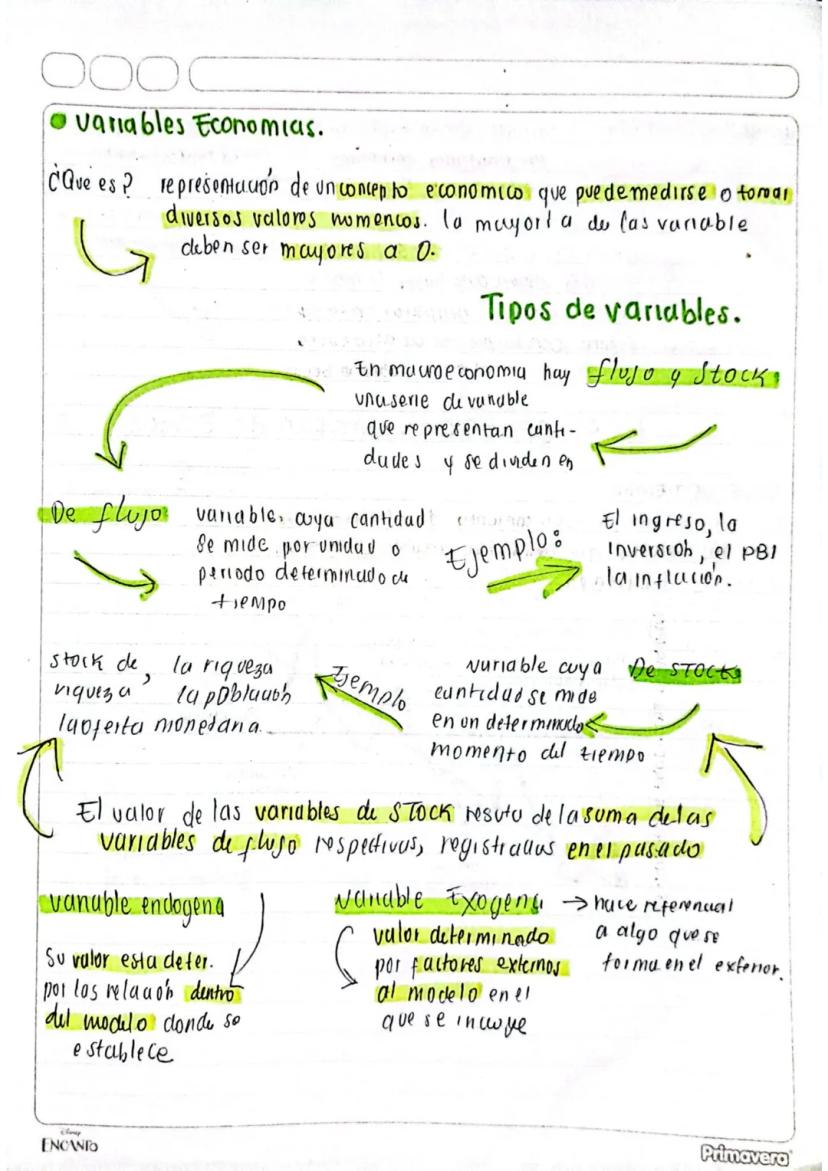 Variables Economias.
¿Que es? representación de un concepto economico que puede medirse o tomar
diversos valores numericos. la mayoria de las variable
deben ser mayores a 0.
Tipos de variables.
En macroeconomia hay flujo y STOCK
una serie de variable
que representan canti-
dades y se dividen en
De flujo
variable, cuya cantidad
se mide por unidad o
periodo determinado de
tiempo
Ejemplo:
El ingreso, la
inversión, el PBI
la inflación.
De STOCK
variable cuya
cantidad se mide
en un determinado
momento del tiempo
Ejemplo
stock de, la riqueza
riqueza la población
la oferta monetaria.
El valor de las variables de STOCK resuta de la suma de las
variables de flujo respectivas, registradas en el pasado
variable endogena
Su valor esta deter.
por los relación dentro
del modelo donde se
establece
Variable Exogena → hace referencial
a algo que se
forma en el exterior.
valor determinado
por factores externos
al modelo en el
que se incluye
Disney
ENCANTO
Primavera